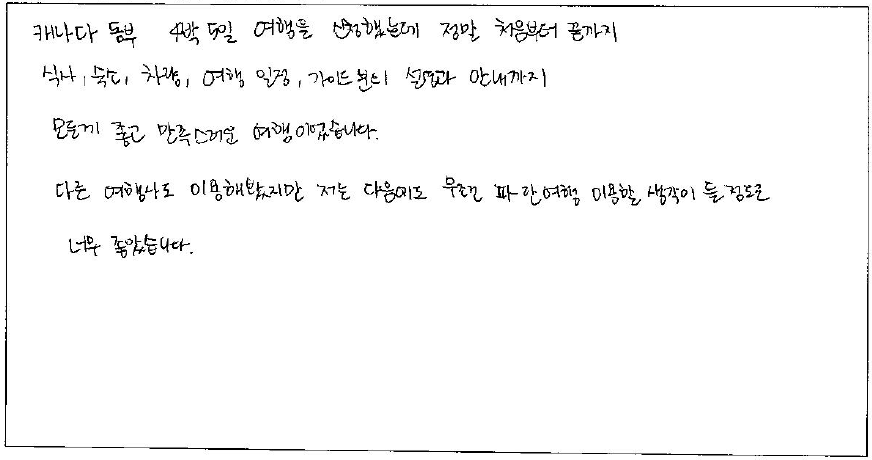 캐나다 동부 4박 5일 여행을 신청했는데 정말 처음부터 끝까지
식사, 숙소, 차량, 여행 일정, 가이드분의 설명과 안내까지
모든게 좋고 만족스러운 여행이었습니다.
다른 여행사도 이용해봤지만 저는 다음에도 무조건 파란여행 이용할 생각이 들 정도로
너무 좋았습니다.